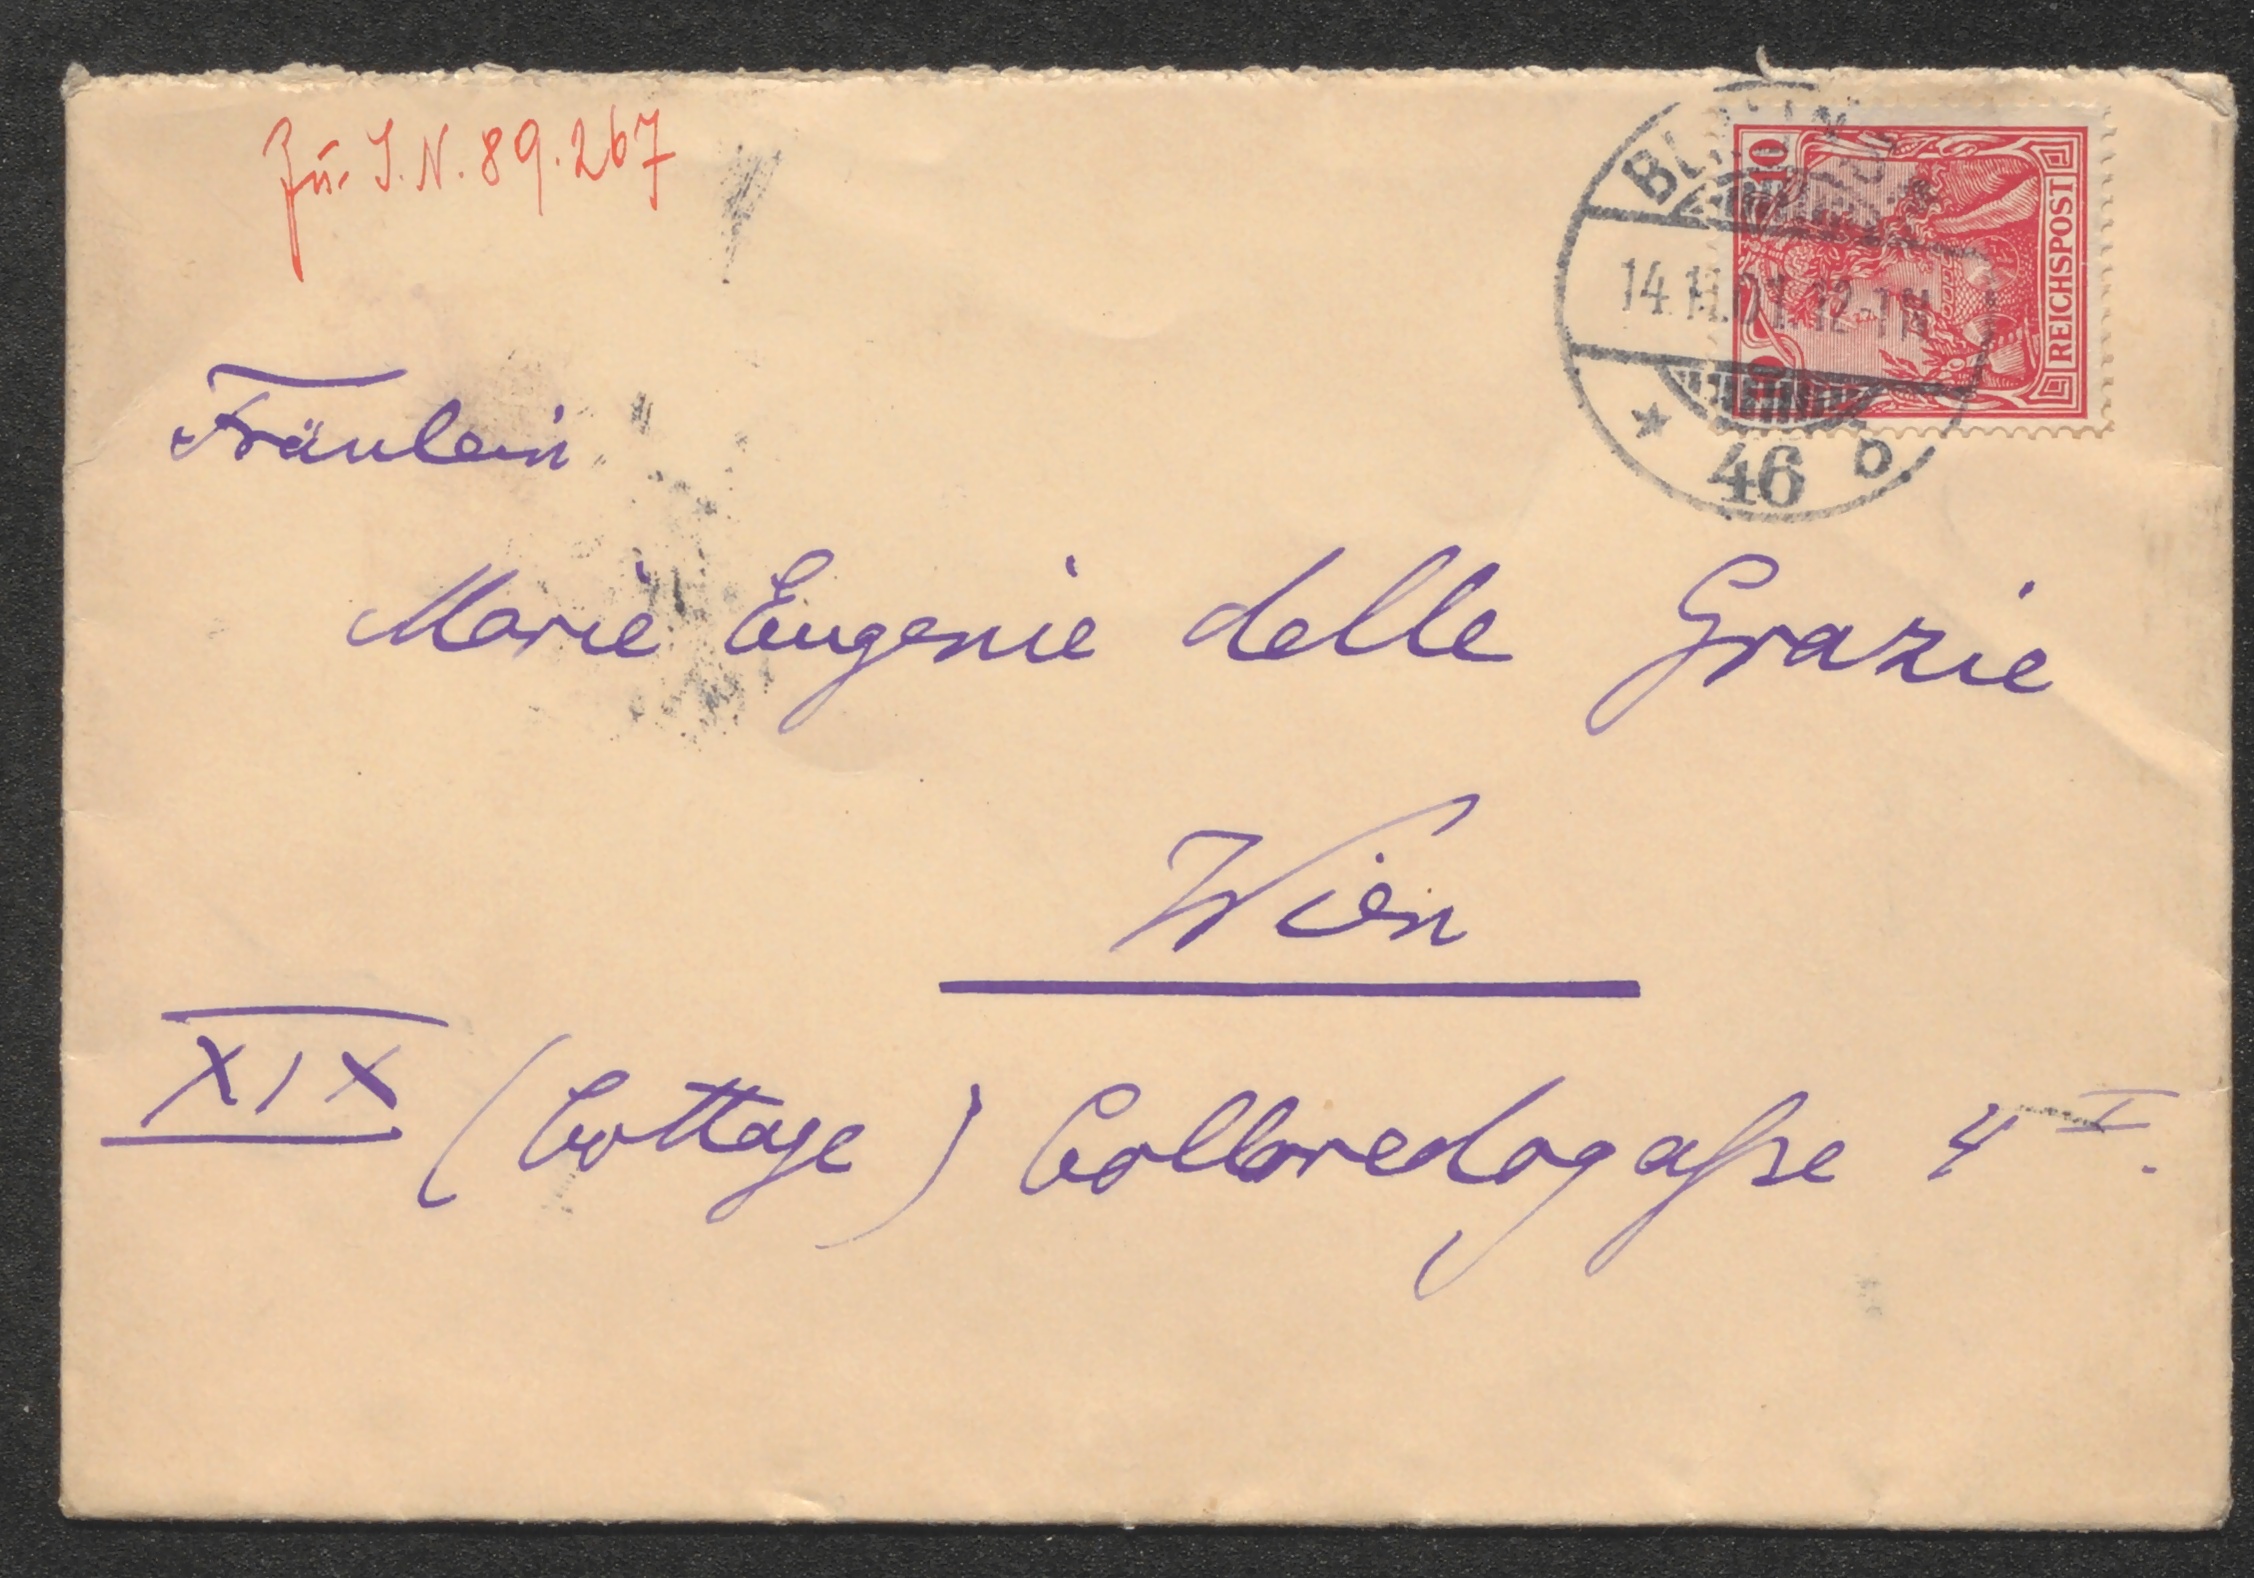 Zu I.N. 89.267
14.11.01.12-1N
10
REICHSPOST
* 46 b.
Fräulein
Marie Eugenie delle Grazie
Wien
XIX (Cottage) Colloredogaſse 4 I.